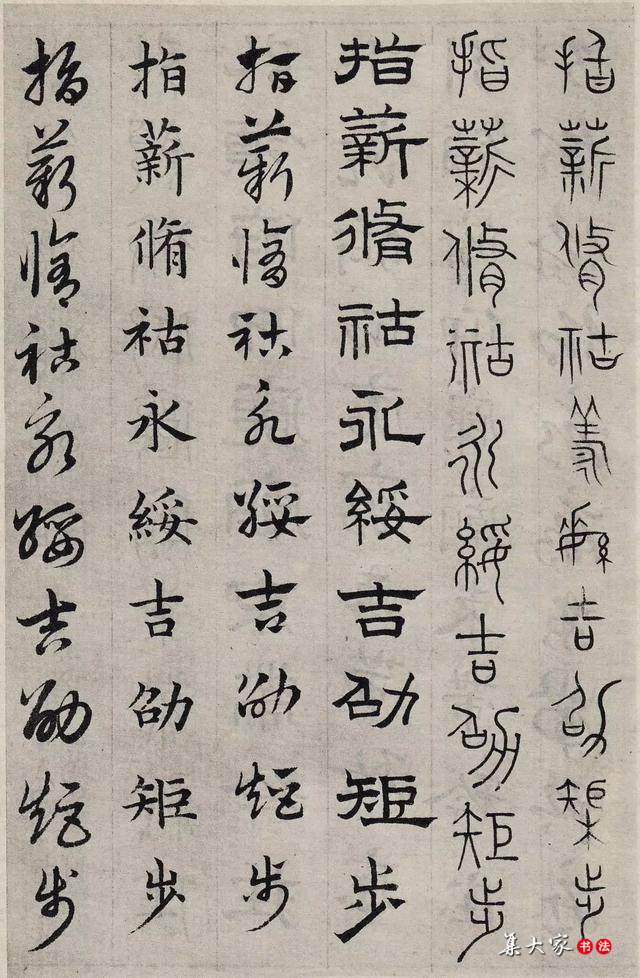 指薪脩祜永綏吉劭矩步
指薪脩祜永綏吉劭矩步
指薪脩祜永綏吉劭矩步
指薪脩祜永綏吉劭矩步
指薪脩祜永綏吉劭矩步
指薪脩祜永綏吉劭矩步
集大家 书法